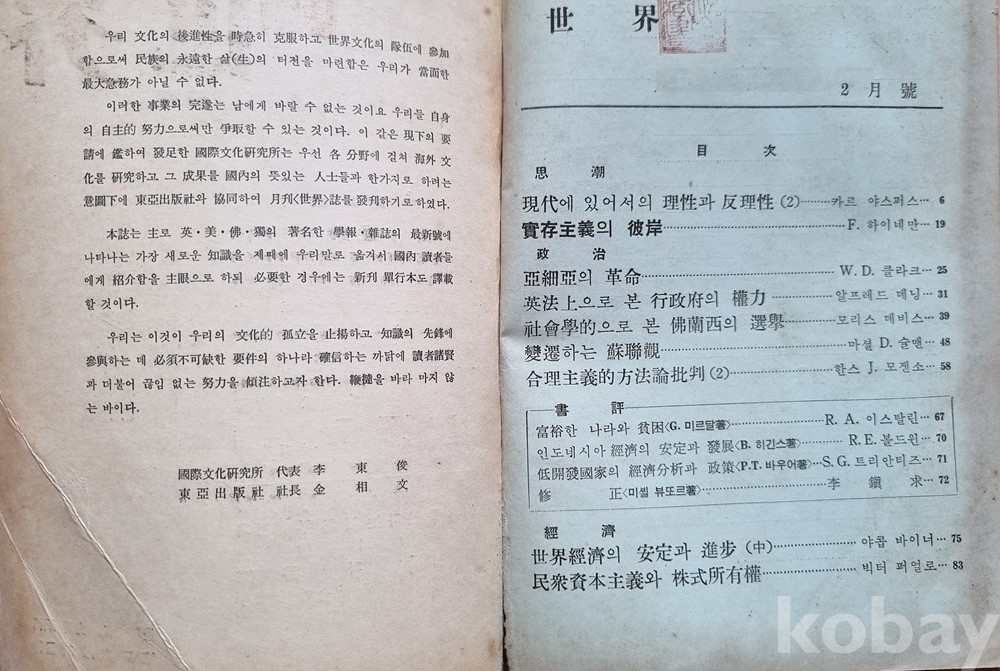 우리 文化의 後進性을 時急히 克服하고 世界文化의 隊伍에 參加
함으로써 民族의 永遠한 삶(生)의 터전을 마련함은 우리가 當面한
最大急務가 아닐 수 없다.
이러한 事業의 完遂는 남에게 바랄 수 없는 것이요 우리들 自身
의 自主的 努力으로써만 爭取할 수 있는 것이다. 이 같은 現下의 要
請에 鑑하여 發足한 國際文化硏究所는 우선 各 分野에 걸쳐 海外 文
化를 硏究하고 그 成果를 國內의 뜻있는 人士들과 한가지로 하려는
意圖下에 東亞出版社와 協同하여 月刊〈世界〉誌를 發刊하기로하였다.
本誌는 主로 英·美·佛·獨의 著名한 學報·雜誌의 最新號에
나타나는 가장 새로운 知識을 제때에 우리말로 옮겨서 國內 讀者들
에게 紹介함을 主眼으로 하되 必要한 경우에는 新刊 單行本도 譯載
할 것이다.
우리는 이것이 우리의 文化的 孤立을 止揚하고 知識의 先鋒에
參與하는 데 必須不可缺한 要件의 하나라 確信하는 까닭에 讀者諸賢
과 더불어 끊임 없는 努力을 傾注하고자 한다. 鞭撻을 바라 마지 않
는 바이다.
國際文化硏究所 代表 李 東 俊
東亞出版社 社長 金 相 文
世 界
2 月 號
目 次
思 潮
現代에 있어서의 理性과 反理性 (2)………카르 야스퍼스… 6
實存主義의 彼岸………F. 하이네만… 19
政 治
亞細亞의 革命………W. D. 클라크… 25
英法上으로 본 行政府의 權力………알프레드 데닝… 31
社會學的으로 본 佛蘭西의 選擧………모리스 데비스… 39
變遷하는 蘇聯觀………마셜 D. 슐맨… 48
合理主義的方法論批判 (2)………한스 J. 모겐소… 58
書 評
富裕한 나라와 貧困〈G. 미르달著〉………R. A. 이스탈린… 67
인도네시아 經濟의 安定과 發展〈B. 히긴스著〉………R. E. 볼드윈… 70
低開發國家의 經濟分析과 政策〈P.T. 바우어著〉…S. G. 트리안티즈… 71
修 正〈미셸 뷰또르著〉………李 鎭 求… 72
經 濟
世界經濟의 安定과 進步 (中)………야콥 바이너… 75
民衆資本主義와 株式所有權………빅터 퍼얼로… 83
kobay